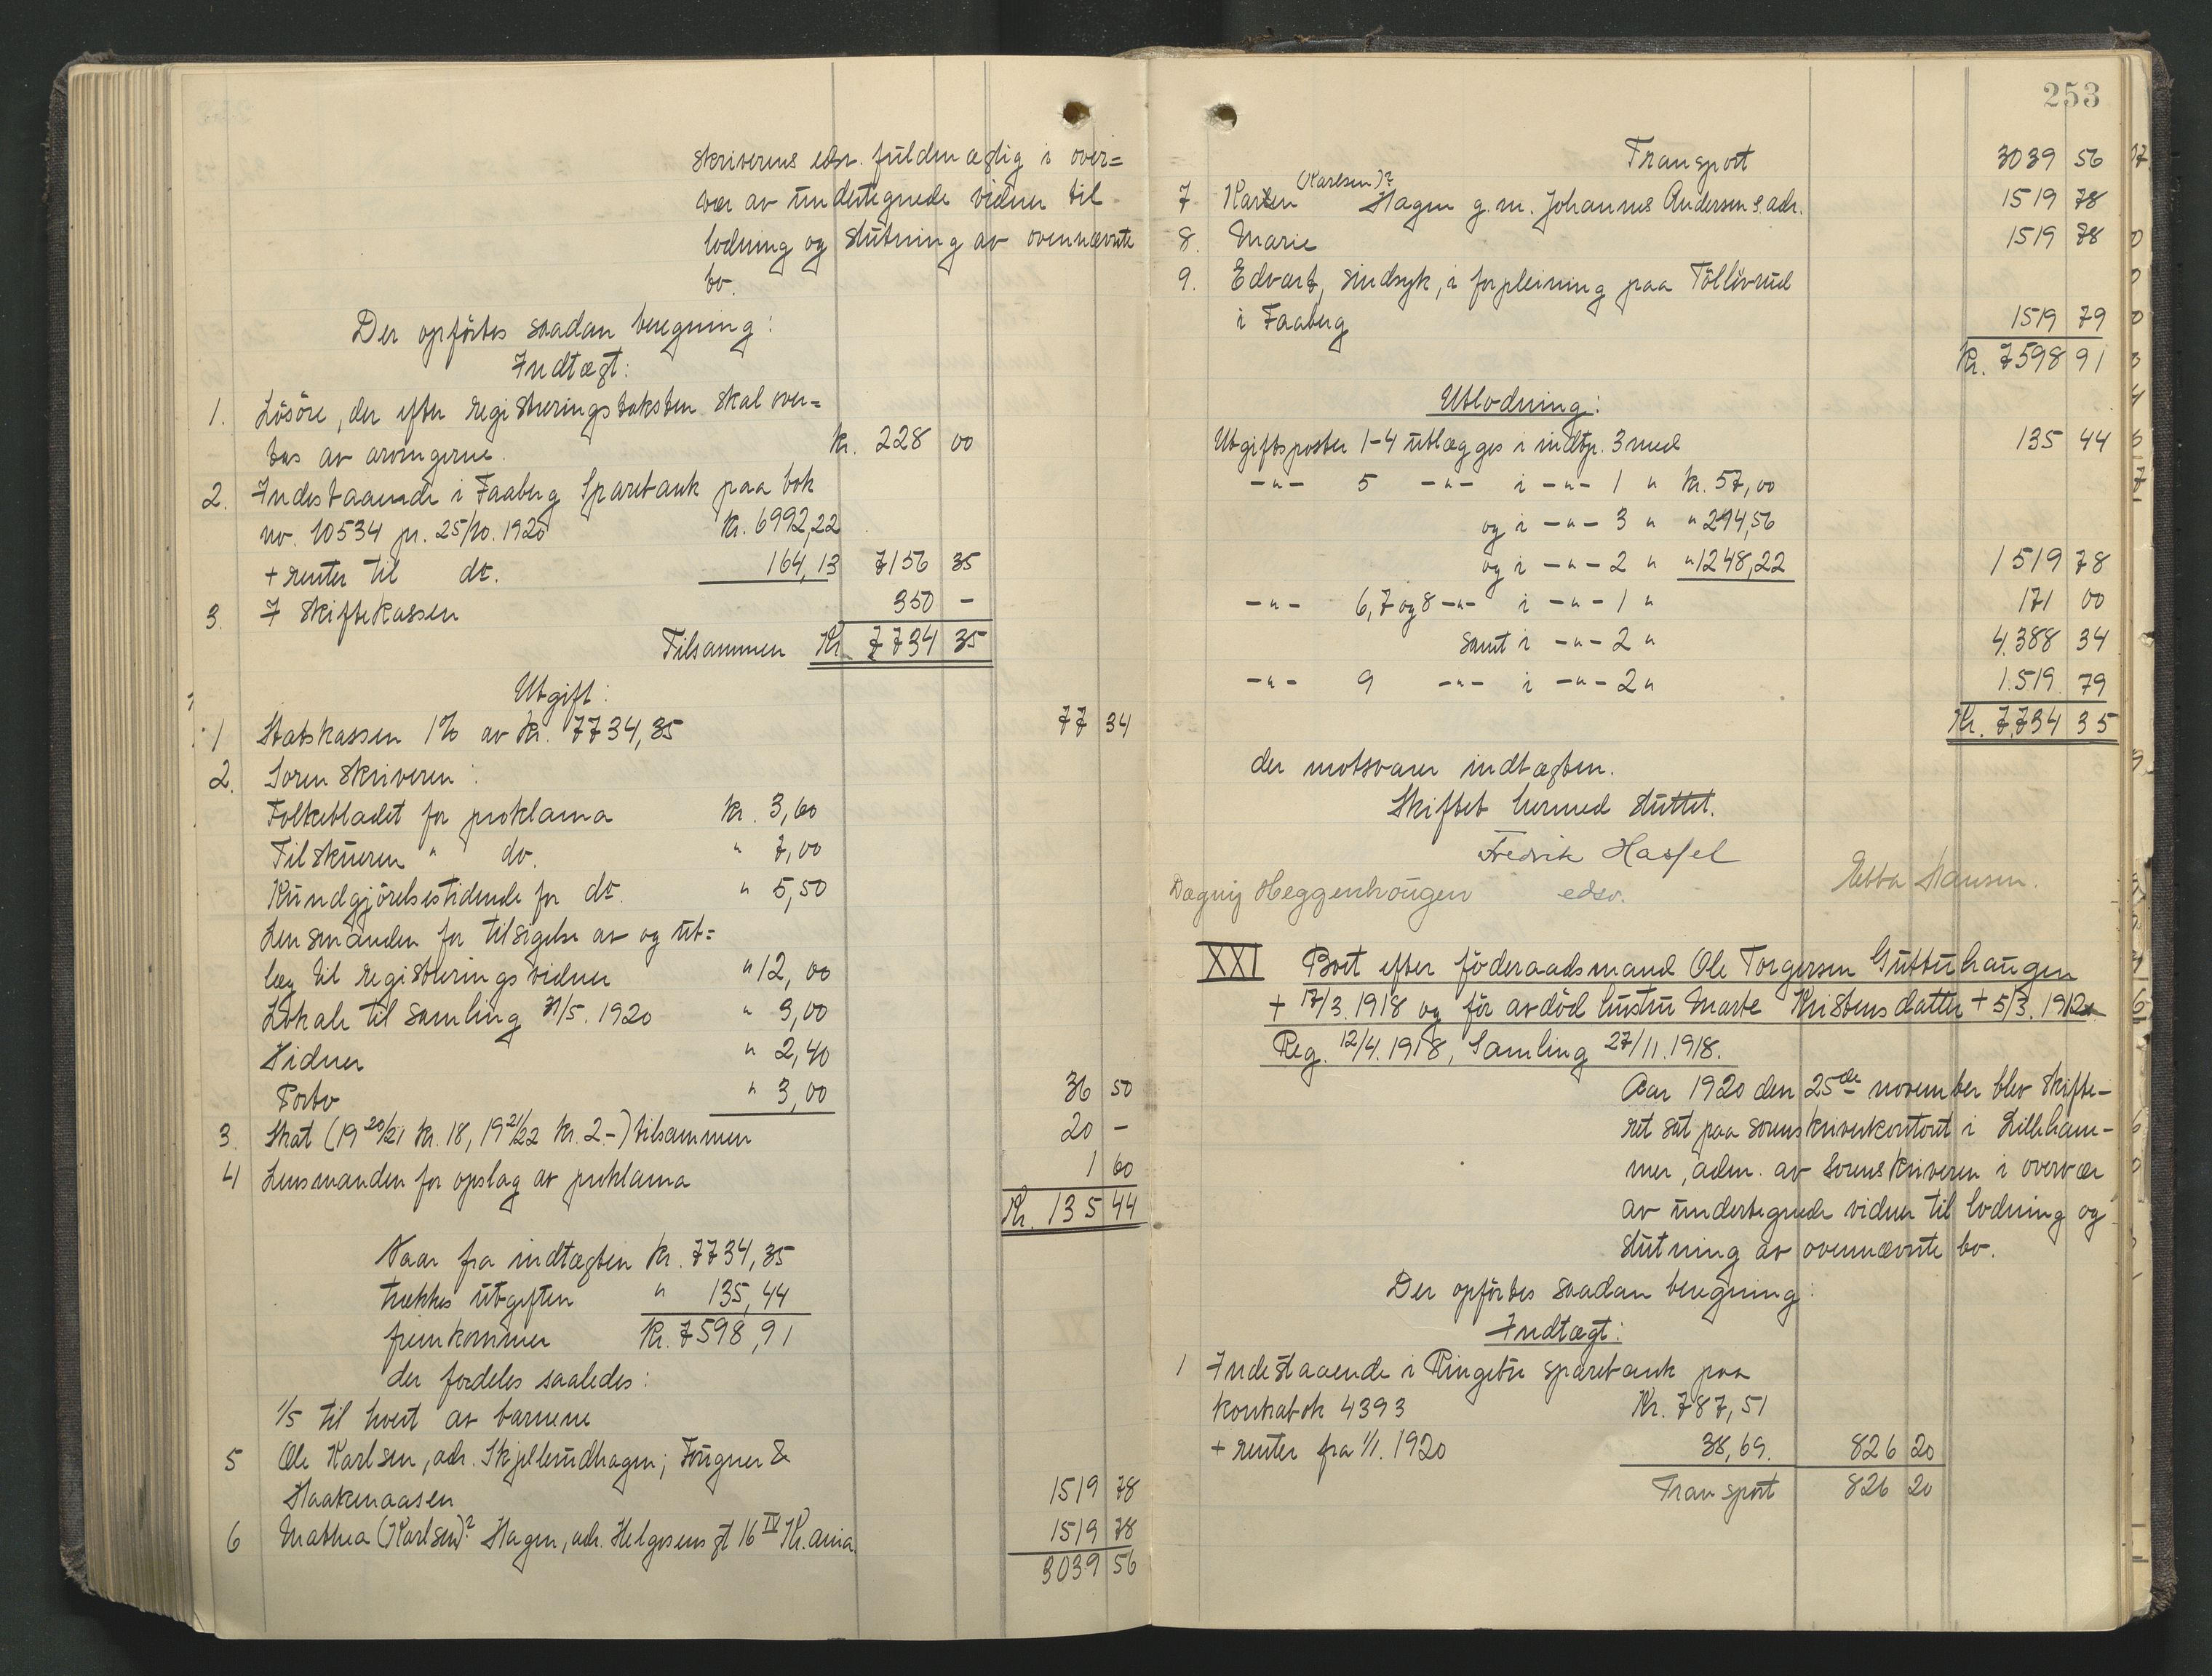 skriverens edsv. fuldmægtig i over=
vær av undertegnede vidner til
lodning og slutning av ovennævnte
bo.
Der opførtes saadan beregning:
Indtægt:
1. Løsøre, der efter registreringstaksten skal over=
tas av arvingerne. kr. 228 00
2. Indestaaende i Faaberg Sparebank paa bok
no. 10534 pr. 25/10. 1920 kr. 6992,22
+ renter til do. 164,13 7156 35
3. I skiftekassen 350 -
Tilsammen Kr. 7734 35
Utgift:
1 Statskassen 1% av kr. 7734,35 77 34
2. Sorenskriveren:
Folkebladet for proklama kr. 3,60
Tilskueren " do. " 7,00
Kundgjørelsestidende for do. " 5,50
Lensmanden for tilsigelse av og ut=
læg til registreringsvidner " 12,00
Lokale til samling 31/5. 1920 " 3,00
Vidner " 2,40
Porto " 3,00 36 50
3. Skat (1920/21 kr. 18, 1921/22 kr. 2.-) tilsammen 20 -
4 Lensmanden for opslag av proklama 1 60
Kr. 135 44
Naar fra indtægten kr. 7734,35
trækkes utgiften " 135,44
fremkommer kr. 7598,91
der fordeles saaledes:
1/5 til hvert av barnene
5 Ole Karlsen, adr. Skjellerudhagen; Fougner &
Haakenaasen 1519 78
6 Mathea (Karlsen)? Hagen, adr. Helgesens gt 16 IV Kr.ania. 1519 78
3039 56
253
Transport 3039 56
(Karlsen)?
7 Karen Hagen g.m. Johannes Andersen s. adr. 1519 78
8. Marie 1519 78
9. Edvart, sindsyk, i forpleining paa Tølløvrud
i Faaberg 1519 79
Kr. 7598 91
Utlodning:
Utgiftsposter 1-4 utlægges i indtp. 3 med 135 44
-"- 5 -"- i -"- 1 " kr. 57,00
og i -"- 3 " " 214,56
og i -"- 2 " " 1248,22 1519 78
-"- 6,7 og 8 -"- i -"- 1 " 171 00
samt i -"- 2 " 4.388 34
-"- 9 -"- i -"- 2 " 1.519 79
Kr. 7.734 35
der motsvarer indtægten.
Skiftet hermed sluttet.
Fredrik Hassel
Dagny Heggenhougen edsv. Ebba Hansen.
XXI Boet efter føderaadsmand Ole Torgersen Gutuhaugen
+ 17/3. 1918 og før avdød hustru Marte Kristensdatter + 5/3. 1912.
Reg. 12/4. 1918, Samling 27/11. 1918.
Aar 1920 den 25de november blev skifte-
ret sat paa sorenskriverkontoret i Lilleham-
mer, adm. av sorenskriveren i overvær
av undertegnede vidner til lodning og
slutning av ovennævnte bo.
Der opførtes saadan beregning:
Indtægt:
1 Indestaaende i Ringebu sparebank paa
kontrabok 4393 Kr. 787,51
+ renter fra 1/1. 1920 38,69. 826 20
Transport 826 20